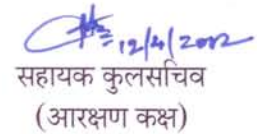 12/4/2002
सहायक कुलसचिव
(आरक्षण कक्ष)